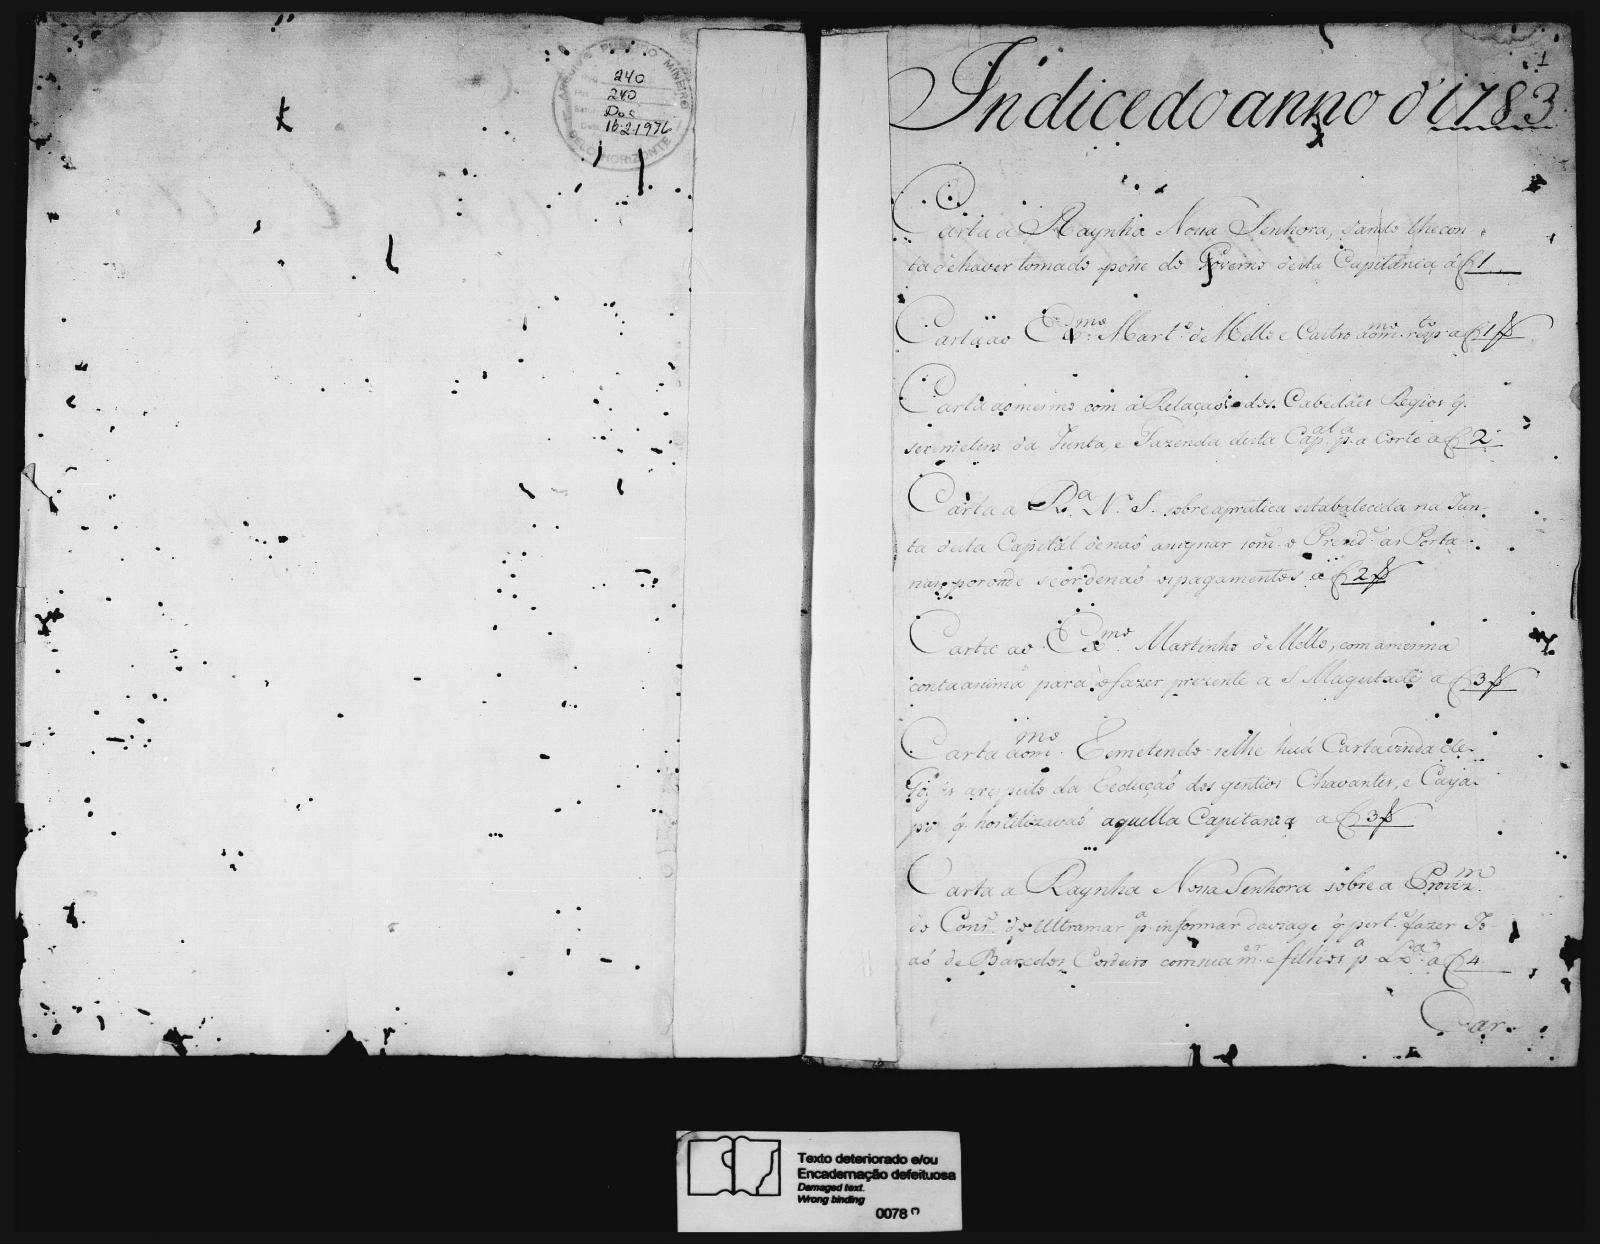 ARQUIVO PUBLICO MINEIRO
240
240
Doc
16-2-1976
BELO HORIZONTE
1
Indice do anno d'1783
Carta a Raynha Nossa Senhora, dando lhe con
ta de haver tomado posse do Governo desta Capitania, á f 1
Carta ao Exmo. Marto. de Mello e Castro ao mmo. respto. a f 1 v
Carta ao mesmo com a Relação dos Cabedáes Regios q.
se remetem da Junta, e Fazenda desta Capal. pa. a Corte a f 2
Carta a Ra. N. S. sobre a pratica estabalecida na Jun-
ta desta Capital de naó assignar som.e o Prezid.e as Porta-
rias, por onde se ordenaó os pagamentos a f 2 v
Carta ao Exmo. Martinho de Mello, com a mesma
conta asima para o fazer prezente a S Magestade a f 3 v
Carta ao mmo. Remetendo-selhe huá Carta vinda de
Goyás a respeito da Reduçaó dos gentios Chavantes, e Cayá-
pó q. hostilizavaó aquella Capitania a f 3 v
Carta a Raynha Nossa Senhora sobre a Provizm.
do Cons.o do Ultramar pa. informar da viage q. pert.e fazer Jo-
aó de Barcelos Cordeiro com sua mer. e filhos pa. Lxa. a f 4
Car-
Texto deteriorado e/ou
Encadernação defeituosa
Damaged text.
Wrong binding
0078